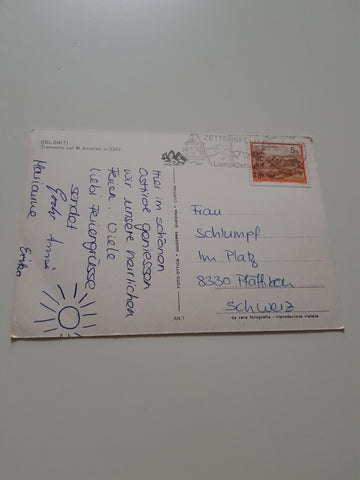 DOLOMITI
Tramonto sul M. Antelao m. 3263
Hier im schönen
Osttirol geniessen
wir unsere herrlichen
Ferien. Viele
liebi Feriengrüsse
sendet
Anna
Marianne
Erika
FOTO-OTTICA
CORTINA
AN. 1
ZETTERSFELD
Lienz/Ostt
5
Frau
Schlumpf
Im Platz
8330 Pfäffikon
Schweiz
da vera fotografia - riproduzione vietata